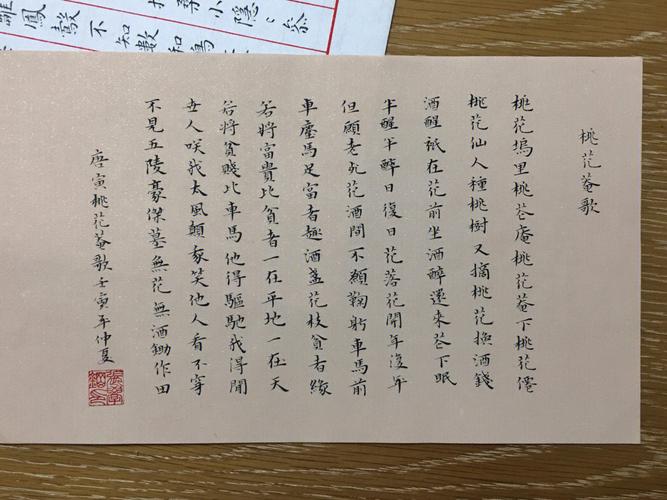 隱
小
知數
不
鳳
桃花菴歌
桃花塢里桃花庵桃花菴下桃花僊
桃花仙人種桃樹又摘桃花換酒錢
酒醒祇在花前坐酒醉還来花下眠
半醒半醉日復日花落花開年復年
但願老死花酒間不願鞠躬車馬前
車塵馬足富者趣酒盞花枝貧者緣
若將富貴比貧者一在平地一在天
若將貧賤比車馬他得驅馳我得閒
世人咲我太風顛我笑他人看不穿
不見五陵豪傑墓無花無酒鋤作田
唐寅桃花菴歌壬寅年仲夏